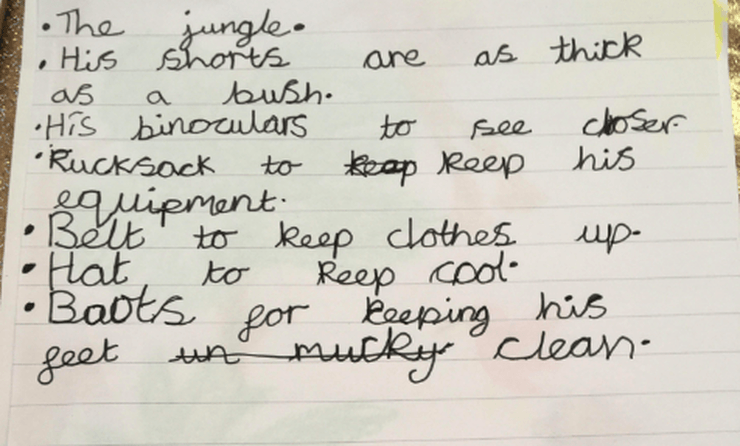 • The jungle.
• His shorts are as thick
as a bush.
• His binoculars to see closer.
• Rucksack to keap keep his
equipment.
• Belt to keep clothes up.
• Hat to keep cool.
• Baots for keeping his
feet un mucky clean.